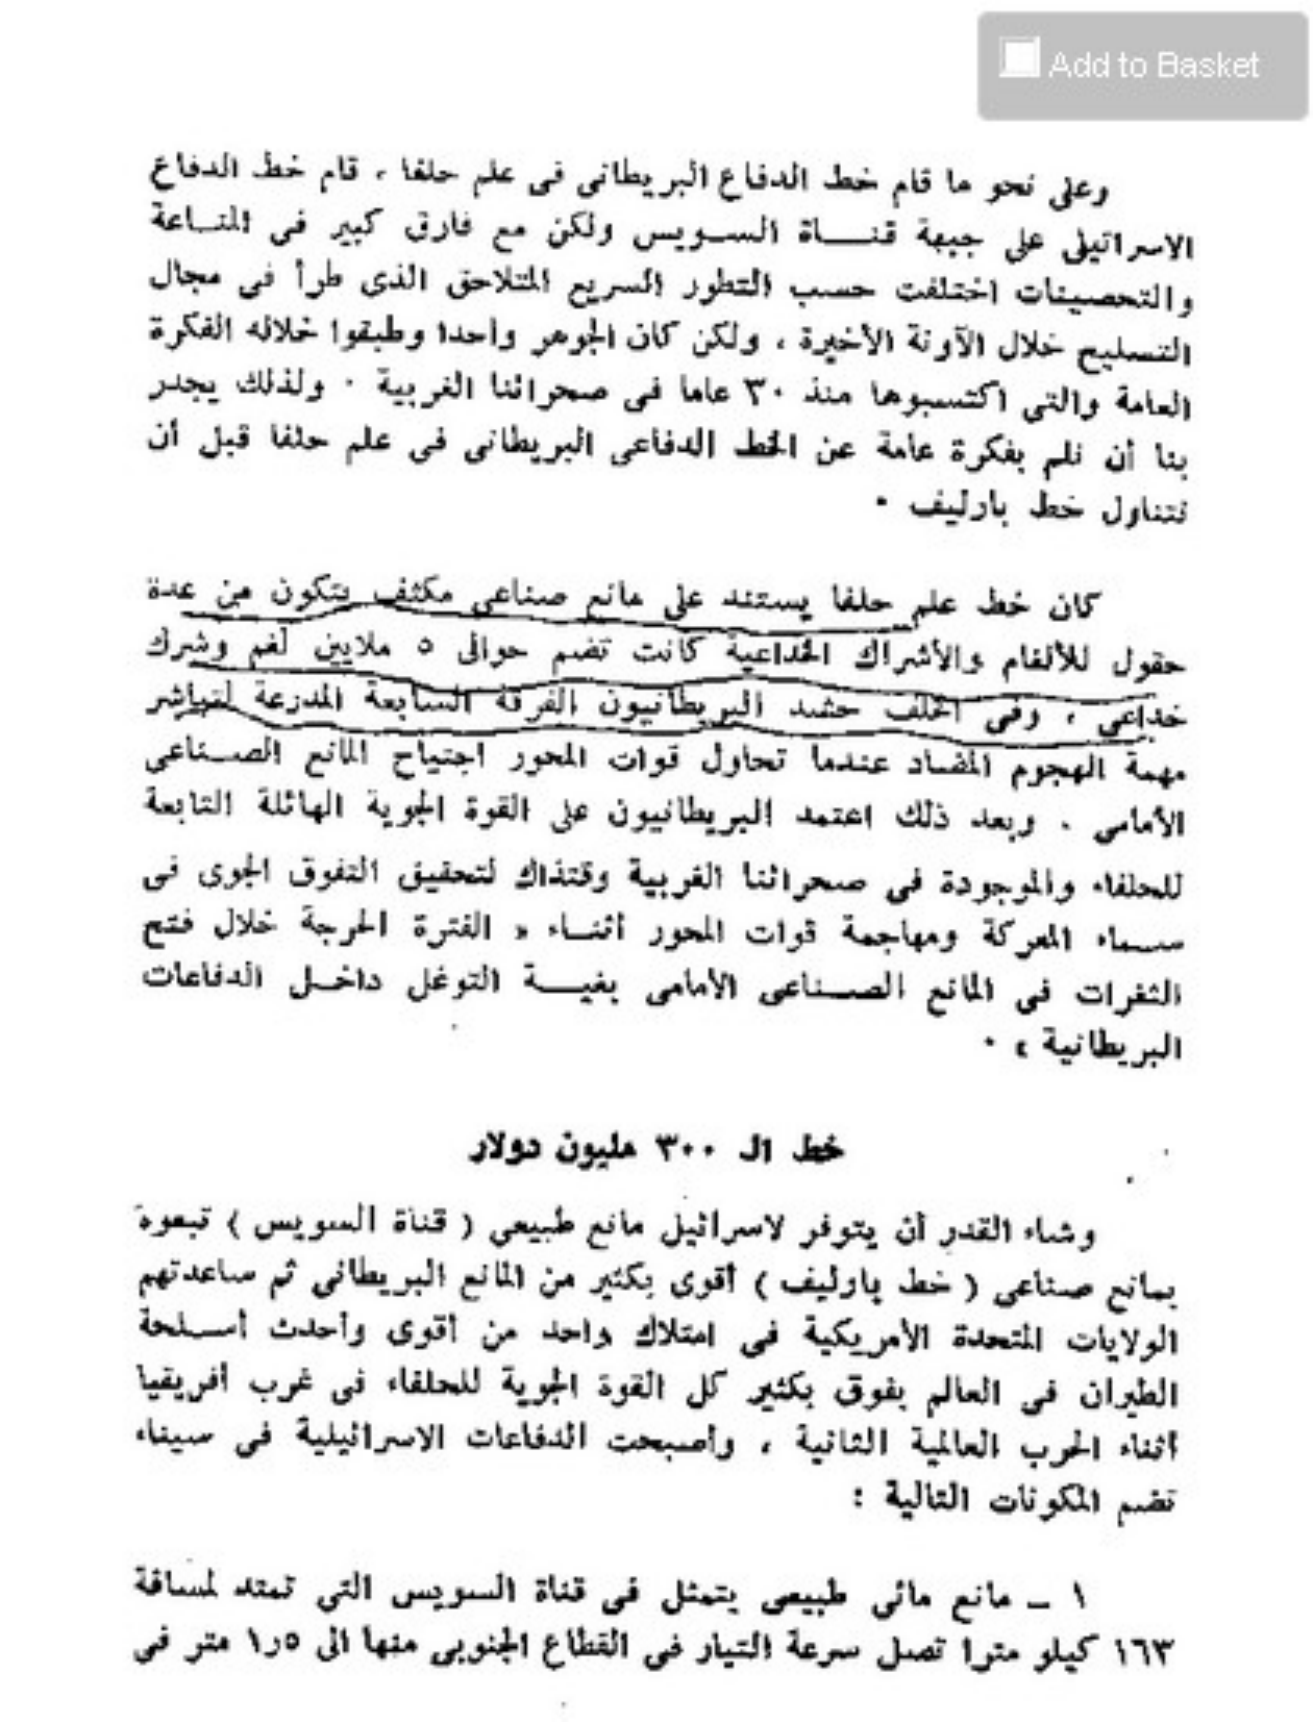 Add to Basket
وعلى نحو ما قام خط الدفاع البريطانى فى علم حلفا ، قام خط الدفاع
الاسرائيلى على جبهة قنـــاة الســويس ولكن مع فارق كبير فى المنــاعة
والتحصينات اختلفت حسب التطور السريع المتلاحق الذى طرأ فى مجال
التسليح خلال الآونة الأخيرة ، ولكن كان الجوهر واحدا وطبقوا خلاله الفكرة
العامة والتى اكتسبوها منذ ٣٠ عاما فى صحرائنا الغربية ٠ ولذلك يجدر
بنا أن نلم بفكرة عامة عن الخط الدفاعى البريطانى فى علم حلفا قبل أن
نتناول خط بارليف ٠
كان خط علم حلفا يستند على مانع صناعى مكثف يتكون من عدة
حقول للألغام والأشراك الخداعية كانت تضم حوالى ٥ ملايين لغم وشرك
خداعى ، وفى الخلف حشد البريطانيون الفرقة السابعة المدرعة لتباشر
مهمة الهجوم المضاد عندما تحاول قوات المحور اجتياح المانع الصــناعى
الأمامى ٠ وبعد ذلك اعتمد البريطانيون على القوة الجوية الهائلة التابعة
للحلفاء والموجودة فى صحرائنا الغربية وقتذاك لتحقيق التفوق الجوى فى
ســماء المعركة ومهاجمة قوات المحور أثنــاء « الفترة الحرجة خلال فتح
الثغرات فى المانع الصــناعى الأمامى بغيـــة التوغل داخــل الدفاعات
البريطانية » ٠
خط الـ ٣٠٠ مليون دولار
وشاء القدر أن يتوفر لاسرائيل مانع طبيعى ( قناة السويس ) تبعوه
بمانع صناعى ( خط بارليف ) أقوى بكثير من المانع البريطانى ثم ساعدتهم
الولايات المتحدة الأمريكية فى امتلاك واحد من أقوى وأحدث أســلحة
الطيران فى العالم يفوق بكثير كل القوة الجوية للحلفاء فى غرب أفريقيا
أثناء الحرب العالمية الثانية ، وأصبحت الدفاعات الاسرائيلية فى سيناء
تضم المكونات التالية :
١ ــ مانع مائى طبيعى يتمثل فى قناة السويس التى تمتد لمسافة
١٦٣ كيلو مترا تصل سرعة التيار فى القطاع الجنوبى منها الى ١٫٥ متر فى